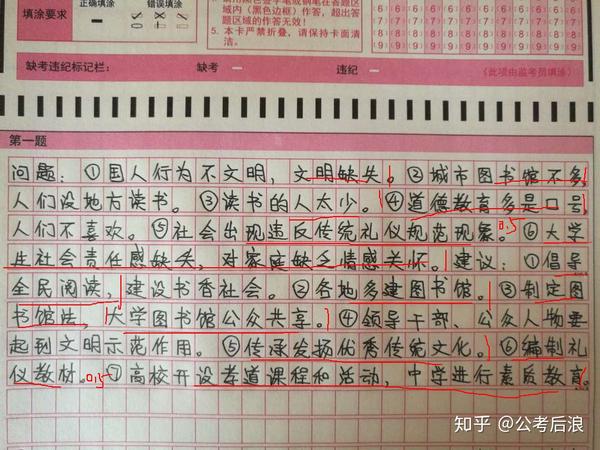 填涂要求
正确填涂
错误填涂
域内(黑色边框)作答,超出答
题区域的作答无效!
5. 本卡严禁折叠,请保持卡面清
洁。
缺考违纪标记栏: 缺考 违纪 (此项由监考员填涂)
第一题
问题:①国人行为不文明,文明缺失。②城市图书馆不多,
人们没地方读书。③读书的人太少。④道德教育多是口号,
人们不喜欢。⑤社会出现违反传统礼仪规范现象。0.5⑥大学
生社会责任感缺失,对家庭缺乏情感关怀。建议:①倡导
全民阅读,建设书香社会。②各地多建图书馆。③制定图
书馆法,大学图书馆公众共享。④领导干部、公众人物要
起到文明示范作用。⑤传承发扬优秀传统文化。⑥编制礼
仪教材。0.5⑦高校开设孝道课程和活动,中学进行素质教育。
知乎 @公考后浪